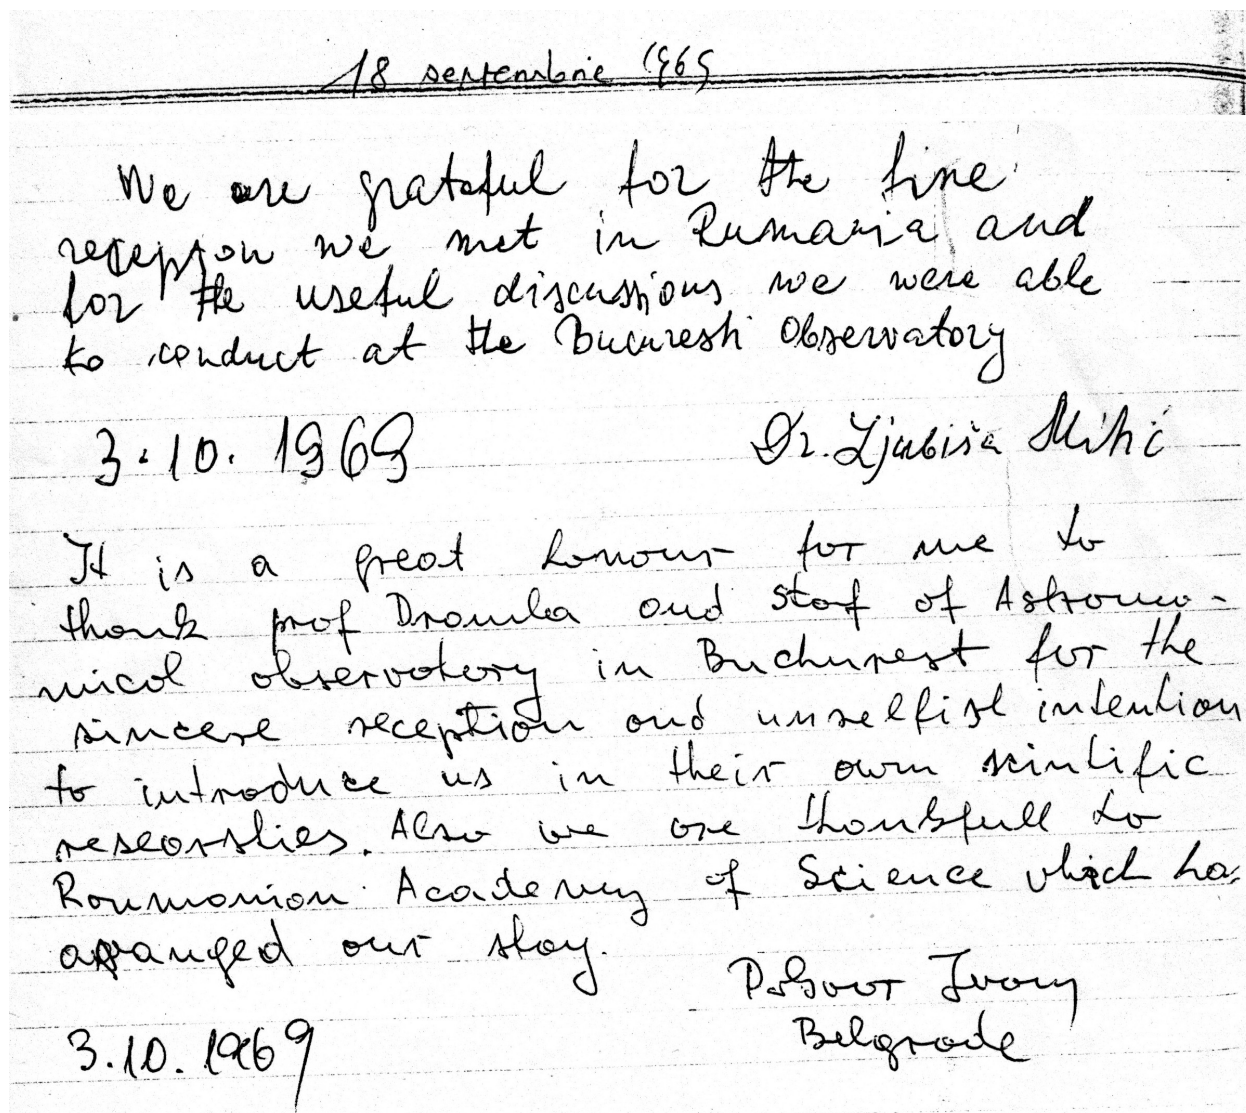 18 septembrie 1969
We are grateful for the fine
recepton we met in Rumania and
for the useful discussions we were able
to conduct at the Bucuresti Observatory
3.10.1969 Dr. Ljubiša Mitić
It is a great honour for me to
thank prof Dramba and staf of Astrono-
mical observatory in Buchurest for the
sincere reception and unselfish intention
to introduce us in their own scintific
researshies. Also we are thankfull to
Roumanian Academy of Science which has
arranged our stay.
Pakvor Ivan
Belgrade
3.10.1969